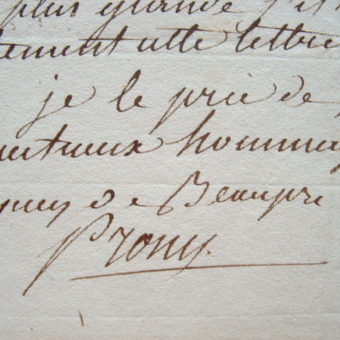 plus grande
tement cette lettre
je le prie de
ectueux hommag
de Beaupré
Prony